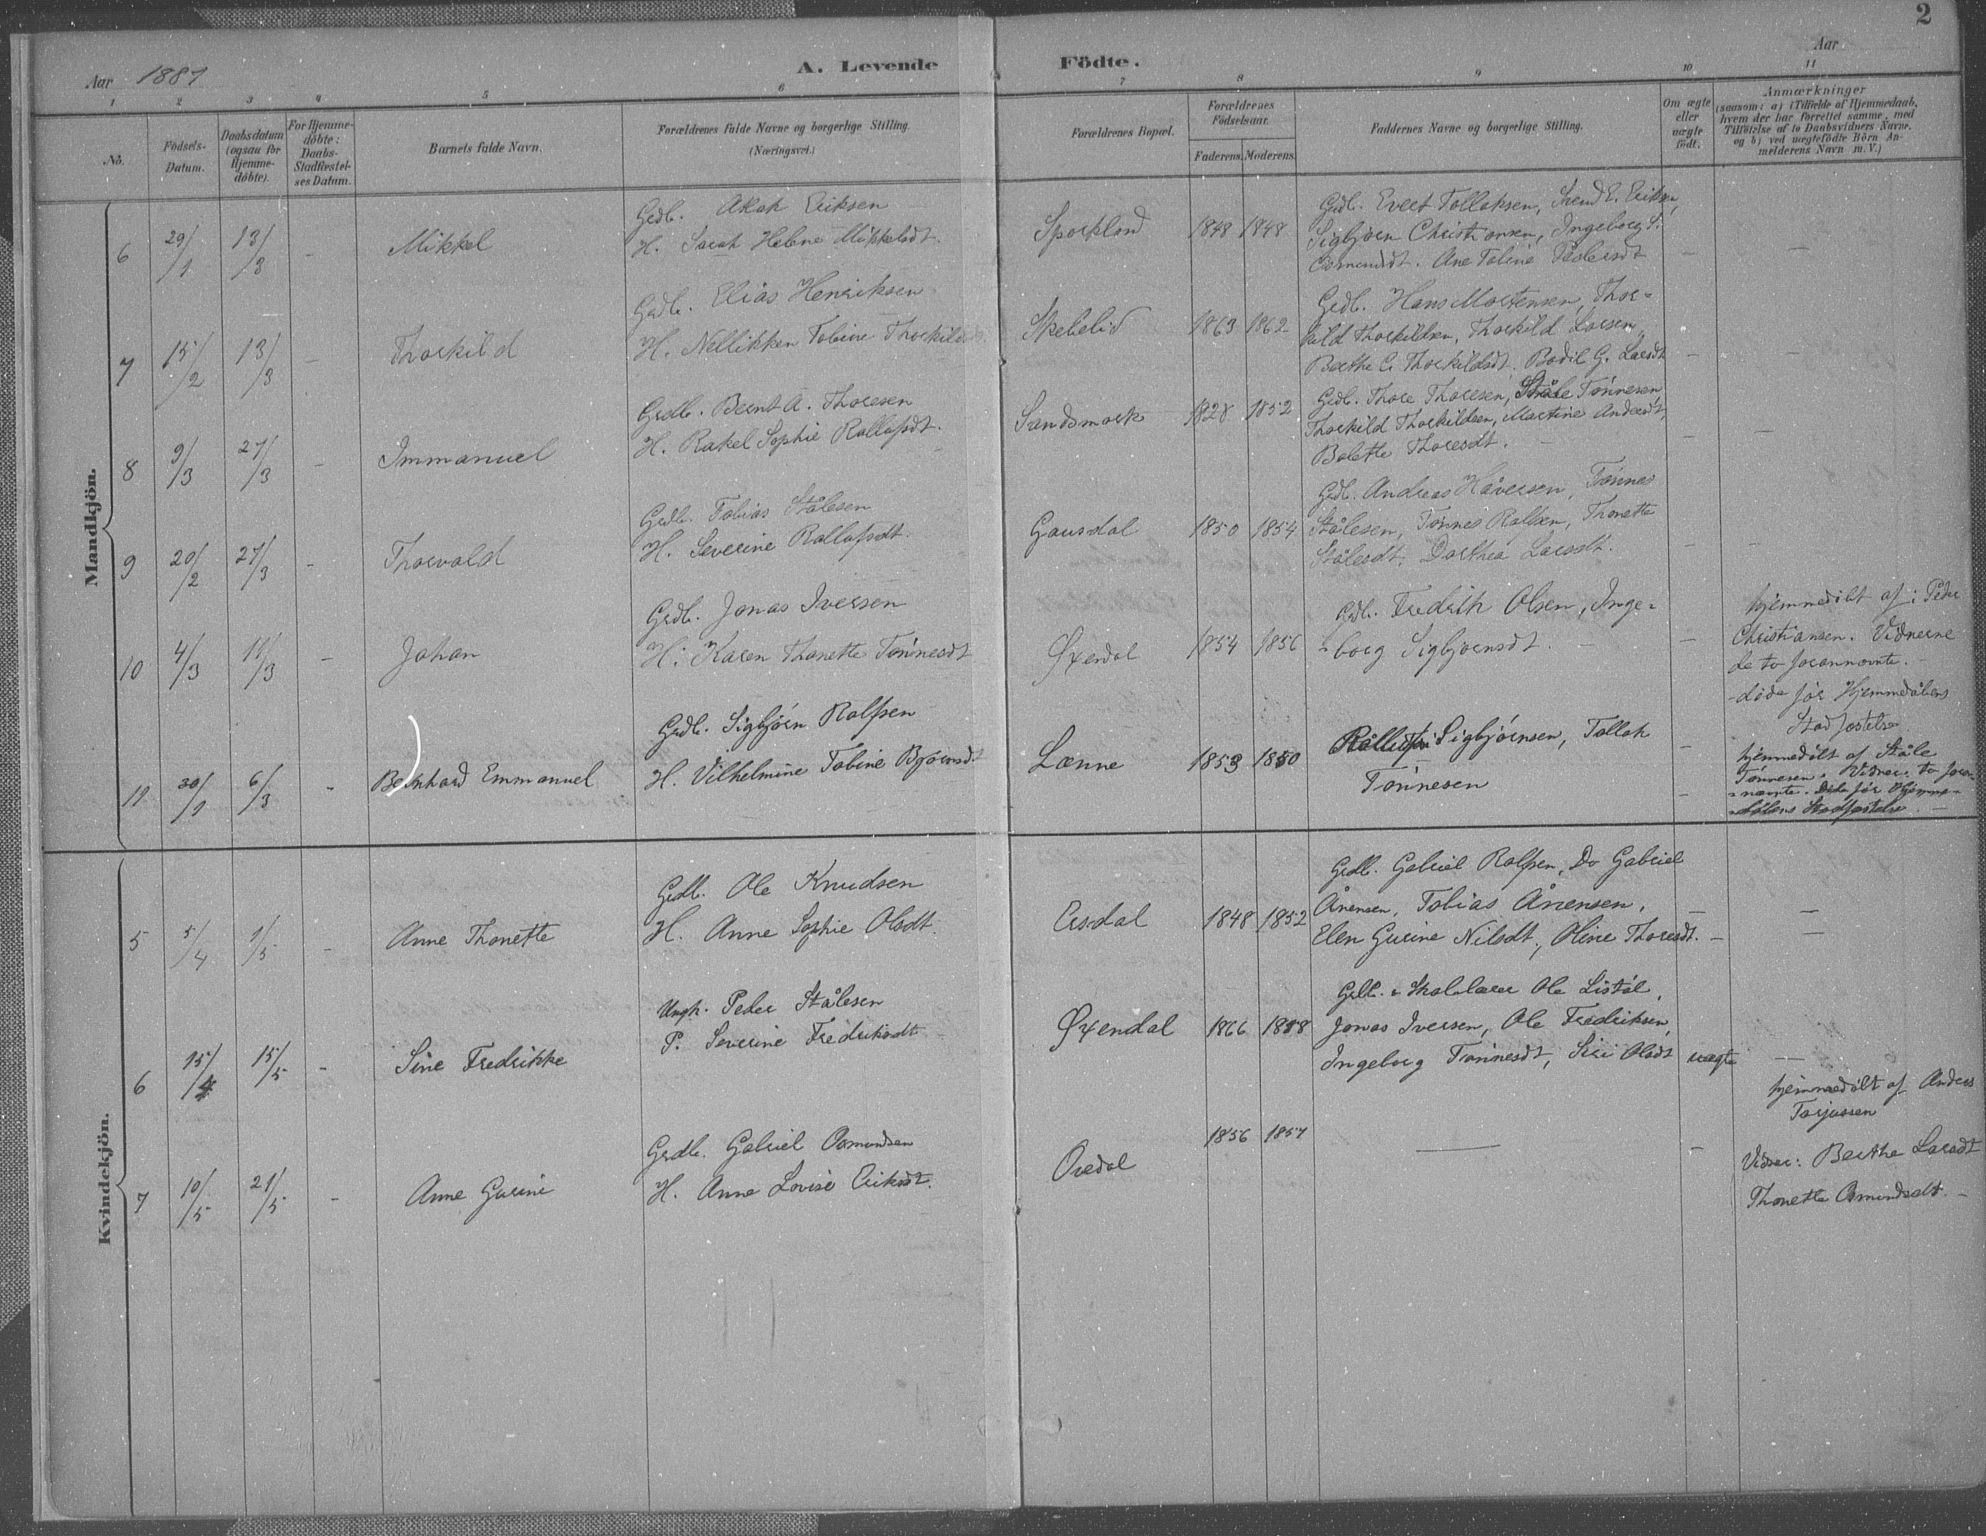 2
Aar 1887
A. Levende Födte.
Aar
1 2 3 4 5 6 7 8 9 10 11
No.
Födsels-Datum.
Daabsdatum (ogsaa for Hjemme-döbte).
For Hjemme-döbte: Daabs-Stadfæstel-ses Datum.
Barnets fulde Navn.
Forældrenes fulde Navne og borgerlige Stilling. (Næringsvei.)
Forældrenes Bopæl.
Forældrenes Födselsaar.
Faderens. Moderens.
Faddernes Navne og borgerlige Stilling.
Om ægte eller uægte födt.
Anmærkninger
(saasom: a) i Tilfælde af Hjemmedaab, hvem der har forrettet samme, med Tilföielse af to Daabsvidners Navne, og b) ved uægtefödte Börn Anmelderens Navn m. V.)
Mandkjön.
6 29/1 13/3 - Mikkel
Grdb. Akak Eriksen
H. Sarah Helene Mikkelsdt.
Sporkland 1848 1848
Grdb. Evert Tollaksen, Svend E. Eriksen,
Sigbjørn Christiansen, Ingeborg S.
Osmundsdt. Ane Tobine Pedersdt
7 15/2 13/3 - Thorkild
Grdb. Elias Henriksen
H. Nellikken Tobine Thorkildsdt
Skebelid 1863 1862
Grdb. Hans Mortensen, Thor-
kild Thorkildsen, Thorkild Larsen,
Berthe C. Thorkildsdt. Bodil G. Larsdt
8 9/3 27/3 - Immanuel
Grdb. Bernt A. Thoresen
H. Rakel Sophie Rollafsdt.
Sandsmark 1828 1852
Grdb. Thore Thoresen, Ståle Tønnesen
Thorkild Thorkildsen, Martine Andersdt,
Bolette Thoresdt.
9 20/2 27/3 - Thorvald
Grdb. Tobias Stålesen
H. Severine Rollafsdt.
Gausdal 1850 1854
Grdb. Andreas Håversen, Tønnes
Stålesen, Tønnes Rolfsen, Thonette
Stålesdt, Dorthea Larsdt.
10 4/3 11/3 - Johan
Grdb. Jonas Iversen
H. Karen Thonette Tønnesdt
Øxendal 1854 1856
Grdb. Fredrik Olsen, Inge-
borg Sigbjørnsdt.
hjemmedøbt af: Peder
Christiansen. Vidnerne
de to forannævnte.
døde før Hjemmedåbens
Stadfæstelse
11 30/1 6/3 - Bernhard Emmanuel
Grdb. Sigbjørn Rolfsen
H. Vilhelmine Tobine Bjørnsdt
Lænne 1853 1850
Sigbjørnsen, Tollak
Tønnesen
hjemmedøbt af Ståle
Tønnesen. Vidner: to foran-
nævnte. Døde før Hjemme-
dåbens Stadfæstelse
Kvindekjön.
5 5/4 1/5 - Anne Thonette
Grdb. Ole Knudsen
H. Anne Sophie Olsdt.
Ersdal 1848 1852
Grdb. Gabriel Rolfsen, Do Gabriel
Ånensen, Tobias Ånensen,
Elen Gurine Nilsdt, Oline Thoresdt.
6 15/4 15/5 - Sine Fredrikke
Ungk. Peder Stålesen
P. Severine Fredriksdt
Øxendal 1866 1858
Grdb. & Skolelærer Ole Listøl,
Jonas Iversen, Ole Fredriksen,
Ingeborg Tønnesdt, Siri Olsdt uægte
7 10/5 21/5 - Anne Gurine
Grdb. Gabriel Osmundsen
H. Anne Lovise Eriksdt.
Oredal 1856 1857
hjemmedøbt af Anders
Torjussen
Vidner: Berthe Larsdt
Thonette Osmundsdt.